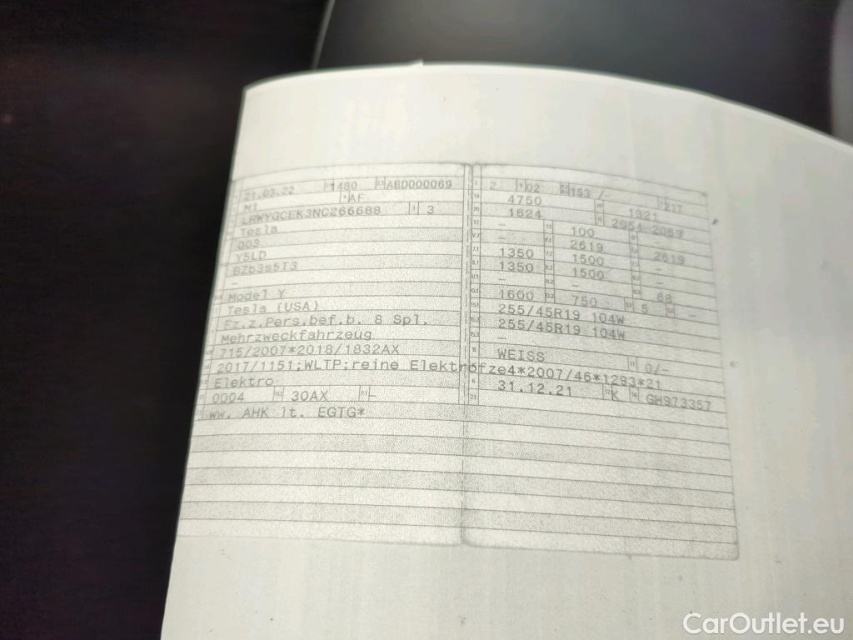 21.03.22 1480 ABD000069 2 02 153 /-
M1 AF 4750 1921
LRWYGCEK3NC266688 3 1624
Tesla - 100 -
003 - 2619 - 2619
Y5LD 1350 1500 -
BZb3s5T3 1350 1500 -
-
Model Y 1600 750 68
Tesla (USA) 255/45R19 104W 5 -
Fz.z.Pers.bef.b. 8 Spl. 255/45R19 104W
Mehrzweckfahrzeug
715/2007*2018/1832AX WEISS 0/-
2017/1151;WLTP;reine Elektrofz e4*2007/46*1293*21
Elektro 31.12.21 K GH973357
0004 30AX -
ww. AHK lt. EGTG*
CarOutlet.eu